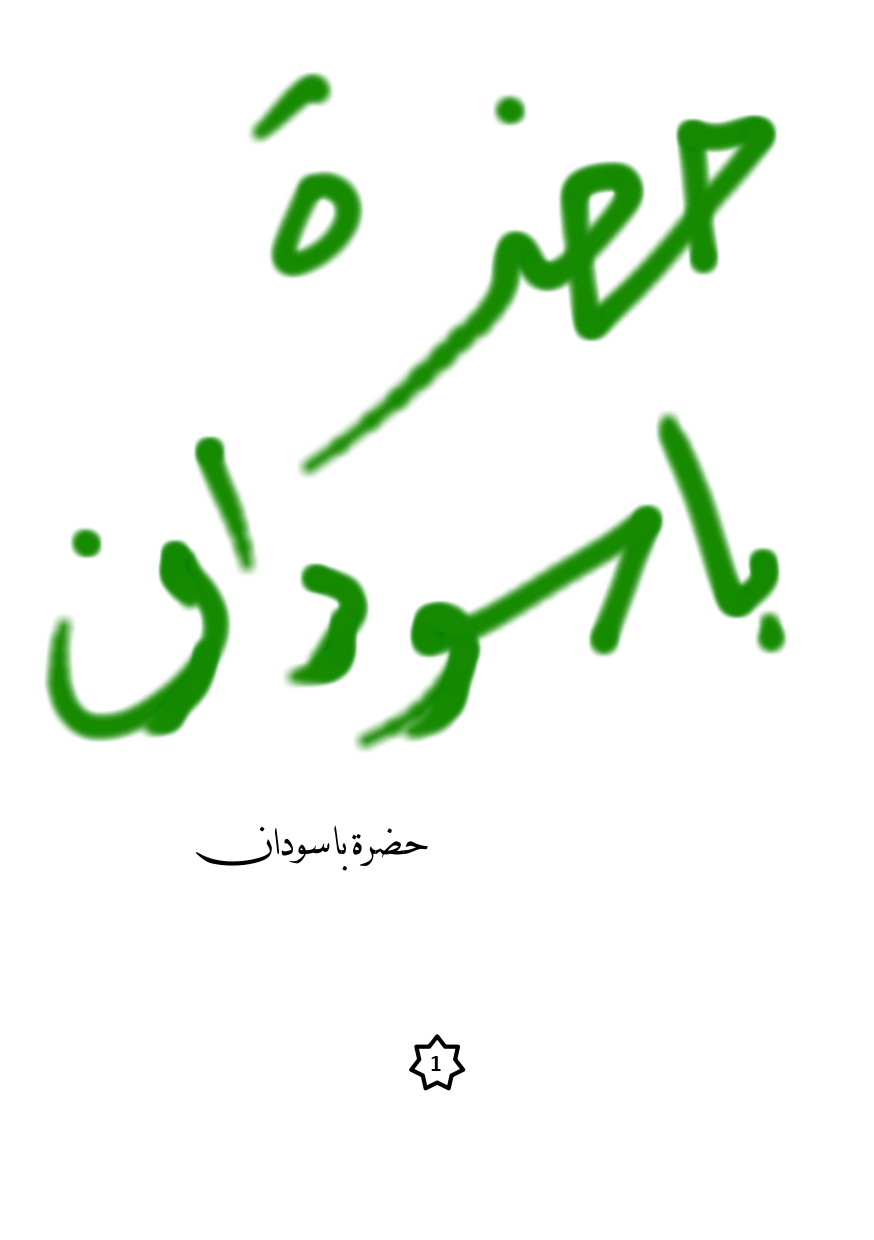 حضرةَ
باسودان
حضرة باسودان
1